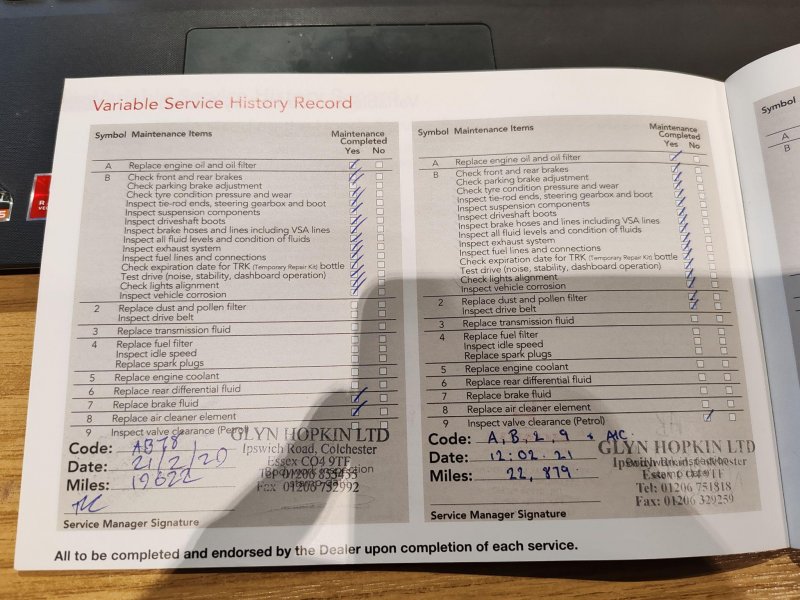 Variable Service History Record
Symbol Maintenance Items
Maintenance
Completed
Yes No
A Replace engine oil and oil filter
B Check front and rear brakes
Check parking brake adjustment
Check tyre condition pressure and wear
Inspect tie-rod ends, steering gearbox and boot
Inspect suspension components
Inspect driveshaft boots
Inspect brake hoses and lines including VSA lines
Inspect all fluid levels and condition of fluids
Inspect exhaust system
Inspect fuel lines and connections
Check expiration date for TRK (Temporary Repair Kit) bottle
Test drive (noise, stability, dashboard operation)
Check lights alignment
Inspect vehicle corrosion
2 Replace dust and pollen filter
Inspect drive belt
3 Replace transmission fluid
4 Replace fuel filter
Inspect idle speed
Replace spark plugs
5 Replace engine coolant
6 Replace rear differential fluid
7 Replace brake fluid
8 Replace air cleaner element
9 Inspect valve clearance (Petrol)
Code: AB78
Date: 21/2/20
Miles: 19622
GLYN HOPKIN LTD
Ipswich Road, Colchester
Essex CO4 9TF
Tel 01206 855455
Fax 01206 752992
Service Manager Signature
Symbol Maintenance Items
Maintenance
Completed
Yes No
A Replace engine oil and oil filter
B Check front and rear brakes
Check parking brake adjustment
Check tyre condition pressure and wear
Inspect tie-rod ends, steering gearbox and boot
Inspect suspension components
Inspect driveshaft boots
Inspect brake hoses and lines including VSA lines
Inspect all fluid levels and condition of fluids
Inspect exhaust system
Inspect fuel lines and connections
Check expiration date for TRK (Temporary Repair Kit) bottle
Test drive (noise, stability, dashboard operation)
Check lights alignment
Inspect vehicle corrosion
2 Replace dust and pollen filter
Inspect drive belt
3 Replace transmission fluid
4 Replace fuel filter
Inspect idle speed
Replace spark plugs
5 Replace engine coolant
6 Replace rear differential fluid
7 Replace brake fluid
8 Replace air cleaner element
9 Inspect valve clearance (Petrol)
Code: A, B, 2, 9 + A/C
Date: 12.02.21
Miles: 22,879
GLYN HOPKIN LTD
Tel: 01206 751818
Fax: 01206 329259
Service Manager Signature
All to be completed and endorsed by the Dealer upon completion of each service.
Symbol
A
B